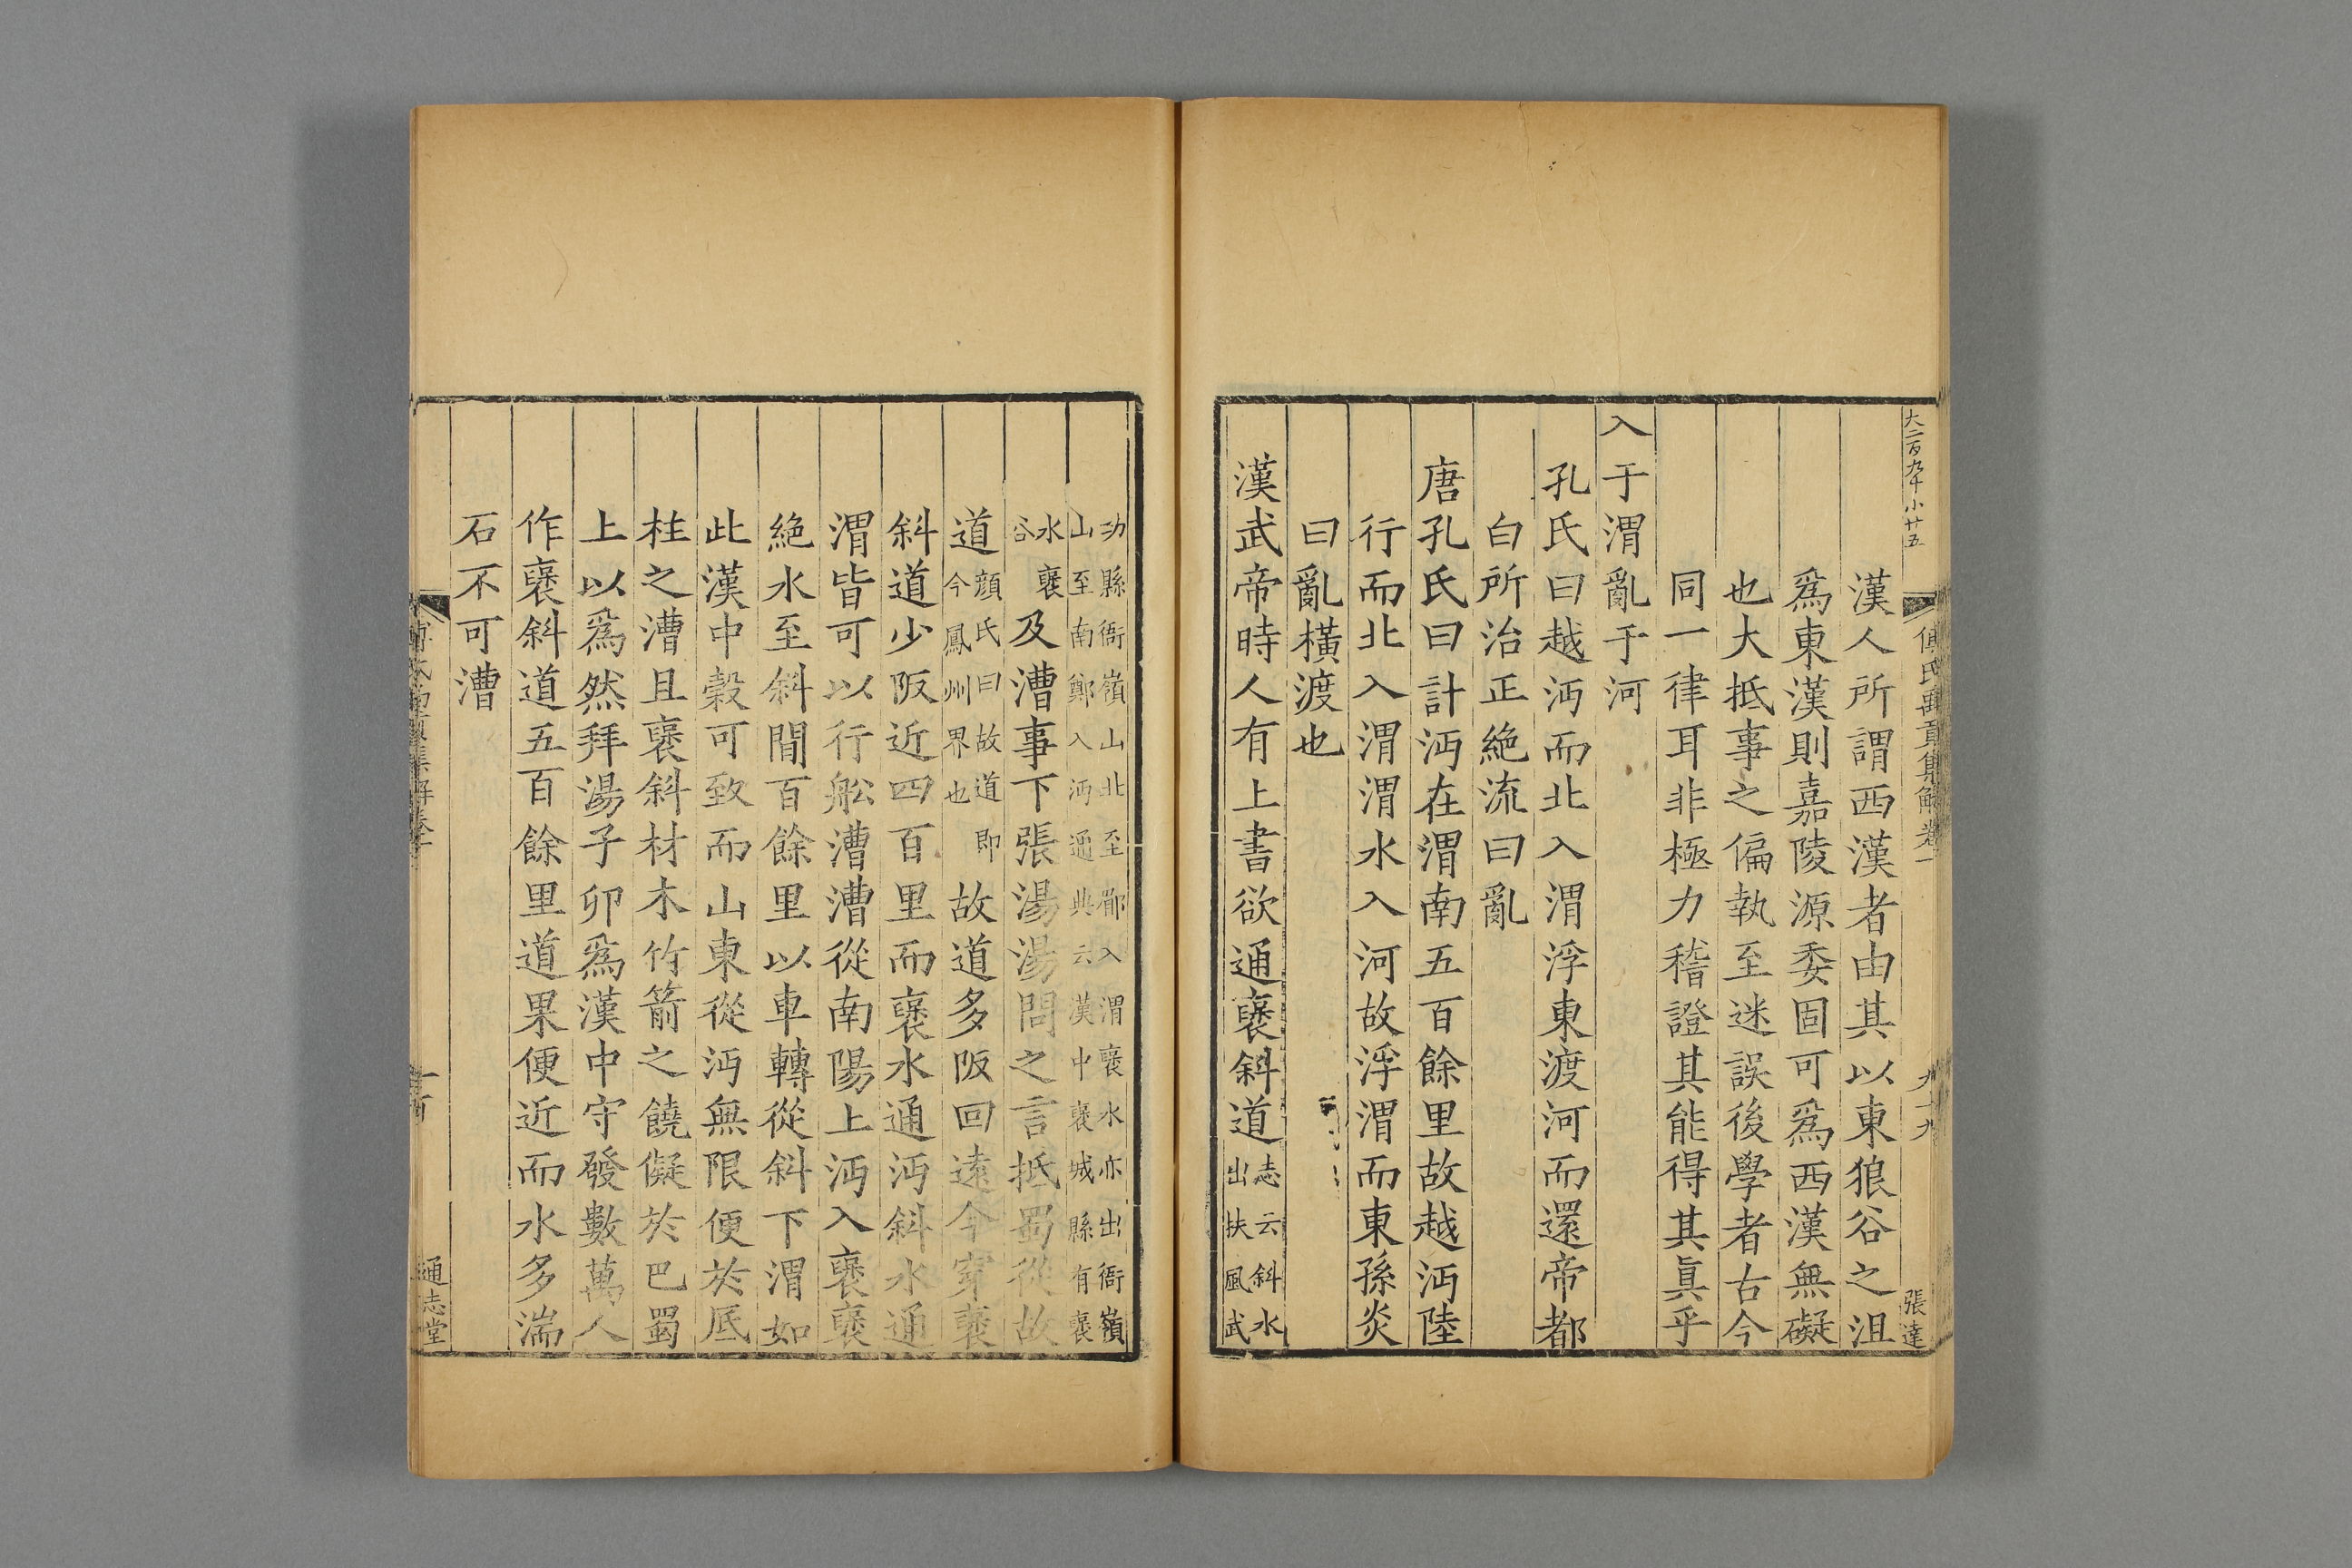 大二百九十 小廿五
傅氏禹貢集解卷一
九十九
張達
漢人所謂西漢者由其以東狼谷之沮
爲東漢則嘉陵源委固可爲西漢無礙
也大抵事之偏執至迷誤後學者古今
同一律耳非極力稽證其能得其眞乎
入于渭亂于河
孔氏曰越沔而北入渭浮東渡河而還帝都
白所治正絶流曰亂
唐孔氏曰計沔在渭南五百餘里故越沔陸
行而北入渭渭水入河故浮渭而東孫炎
曰亂橫渡也
漢武帝時人有上書欲通襃斜道
志云斜水
出扶風武
功縣衙嶺山北至郿入渭襃水亦出衙嶺
山至南鄭入沔通典云漢中襃城縣有襃
水襃
谷
及漕事下張湯湯問之言抵蜀從故
道
顔氏曰故道即
今鳳州界也
故道多阪回遠今穿襃
斜道少阪近四百里而襃水通沔斜水通
渭皆可以行舩漕漕從南陽上沔入襃襃
絶水至斜閒百餘里以車轉從斜下渭如
此漢中穀可致而山東從沔無限便於底
柱之漕且襃斜材木竹箭之饒儗於巴蜀
上以爲然拜湯子卯爲漢中守發數萬人
作襃斜道五百餘里道果便近而水多湍
石不可漕
通志堂